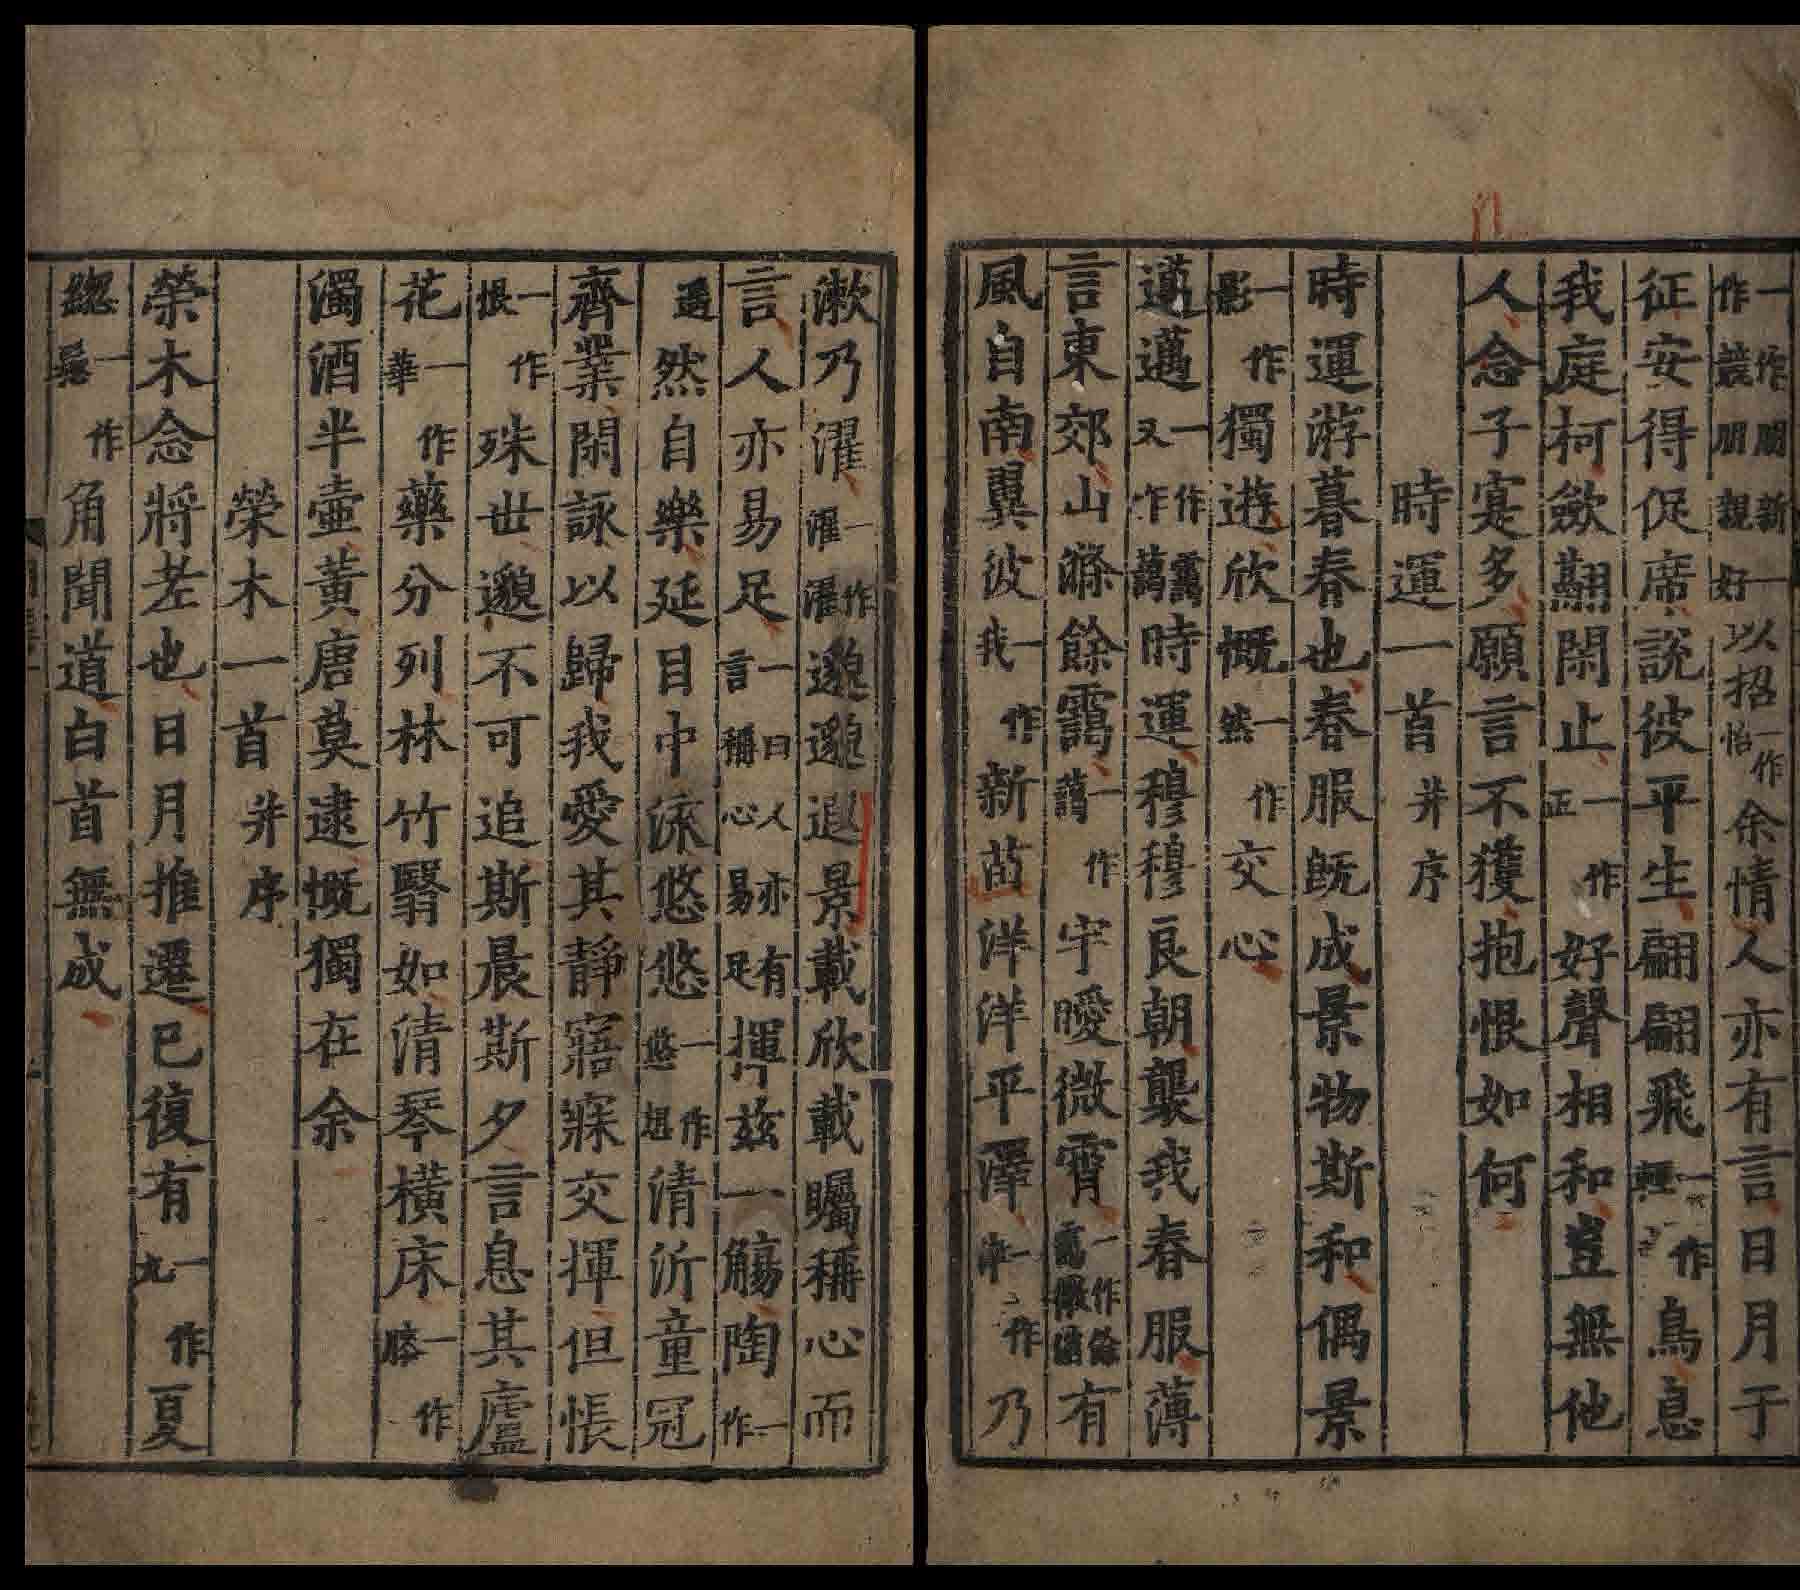 一作朋新一作叢朋親好以招一作怡余情人亦有言日月于
征安得促席說彼平生翩翩飛一作輕鳥息
我庭柯斂翮閑止一作正好聲相和豈無他
人念子寔多願言不獲抱恨如何
時運一首并序
時運游暮春也春服旣成景物斯和偶景
一作影獨遊欣慨一作然交心
邁邁一作靄又作藹時運穆穆良朝襲我春服薄
言東郊山滌餘靄一作藹宇曖微霄一作餘靄微消有
風自南翼彼一作我新苗洋洋平澤一作津乃
漱乃濯一作濯濯邈邈遐景載欣載矚稱心而
言人亦易足一曰人亦有言稱心易足揮兹一觴陶一作
遥然自樂延目中流悠悠一作悠想清沂童冠
齊業閑詠以歸我愛其靜寤寐交揮但悵
一作恨殊世邈不可追斯晨斯夕言息其廬
花一作華藥分列林竹翳如清琴橫床一作膝
濁酒半壺黃唐莫逮慨獨在余
榮木一首并序
榮木念將老也日月推遷已復有一作九夏
緫一作䰉角聞道白首無成